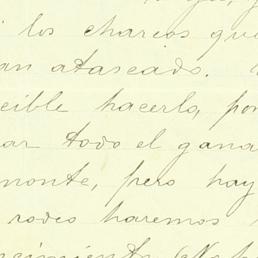 los charcos que
an atascado.
cible hacerlo, por
ar todo el gana
monte, pero hay
rodeo haremos